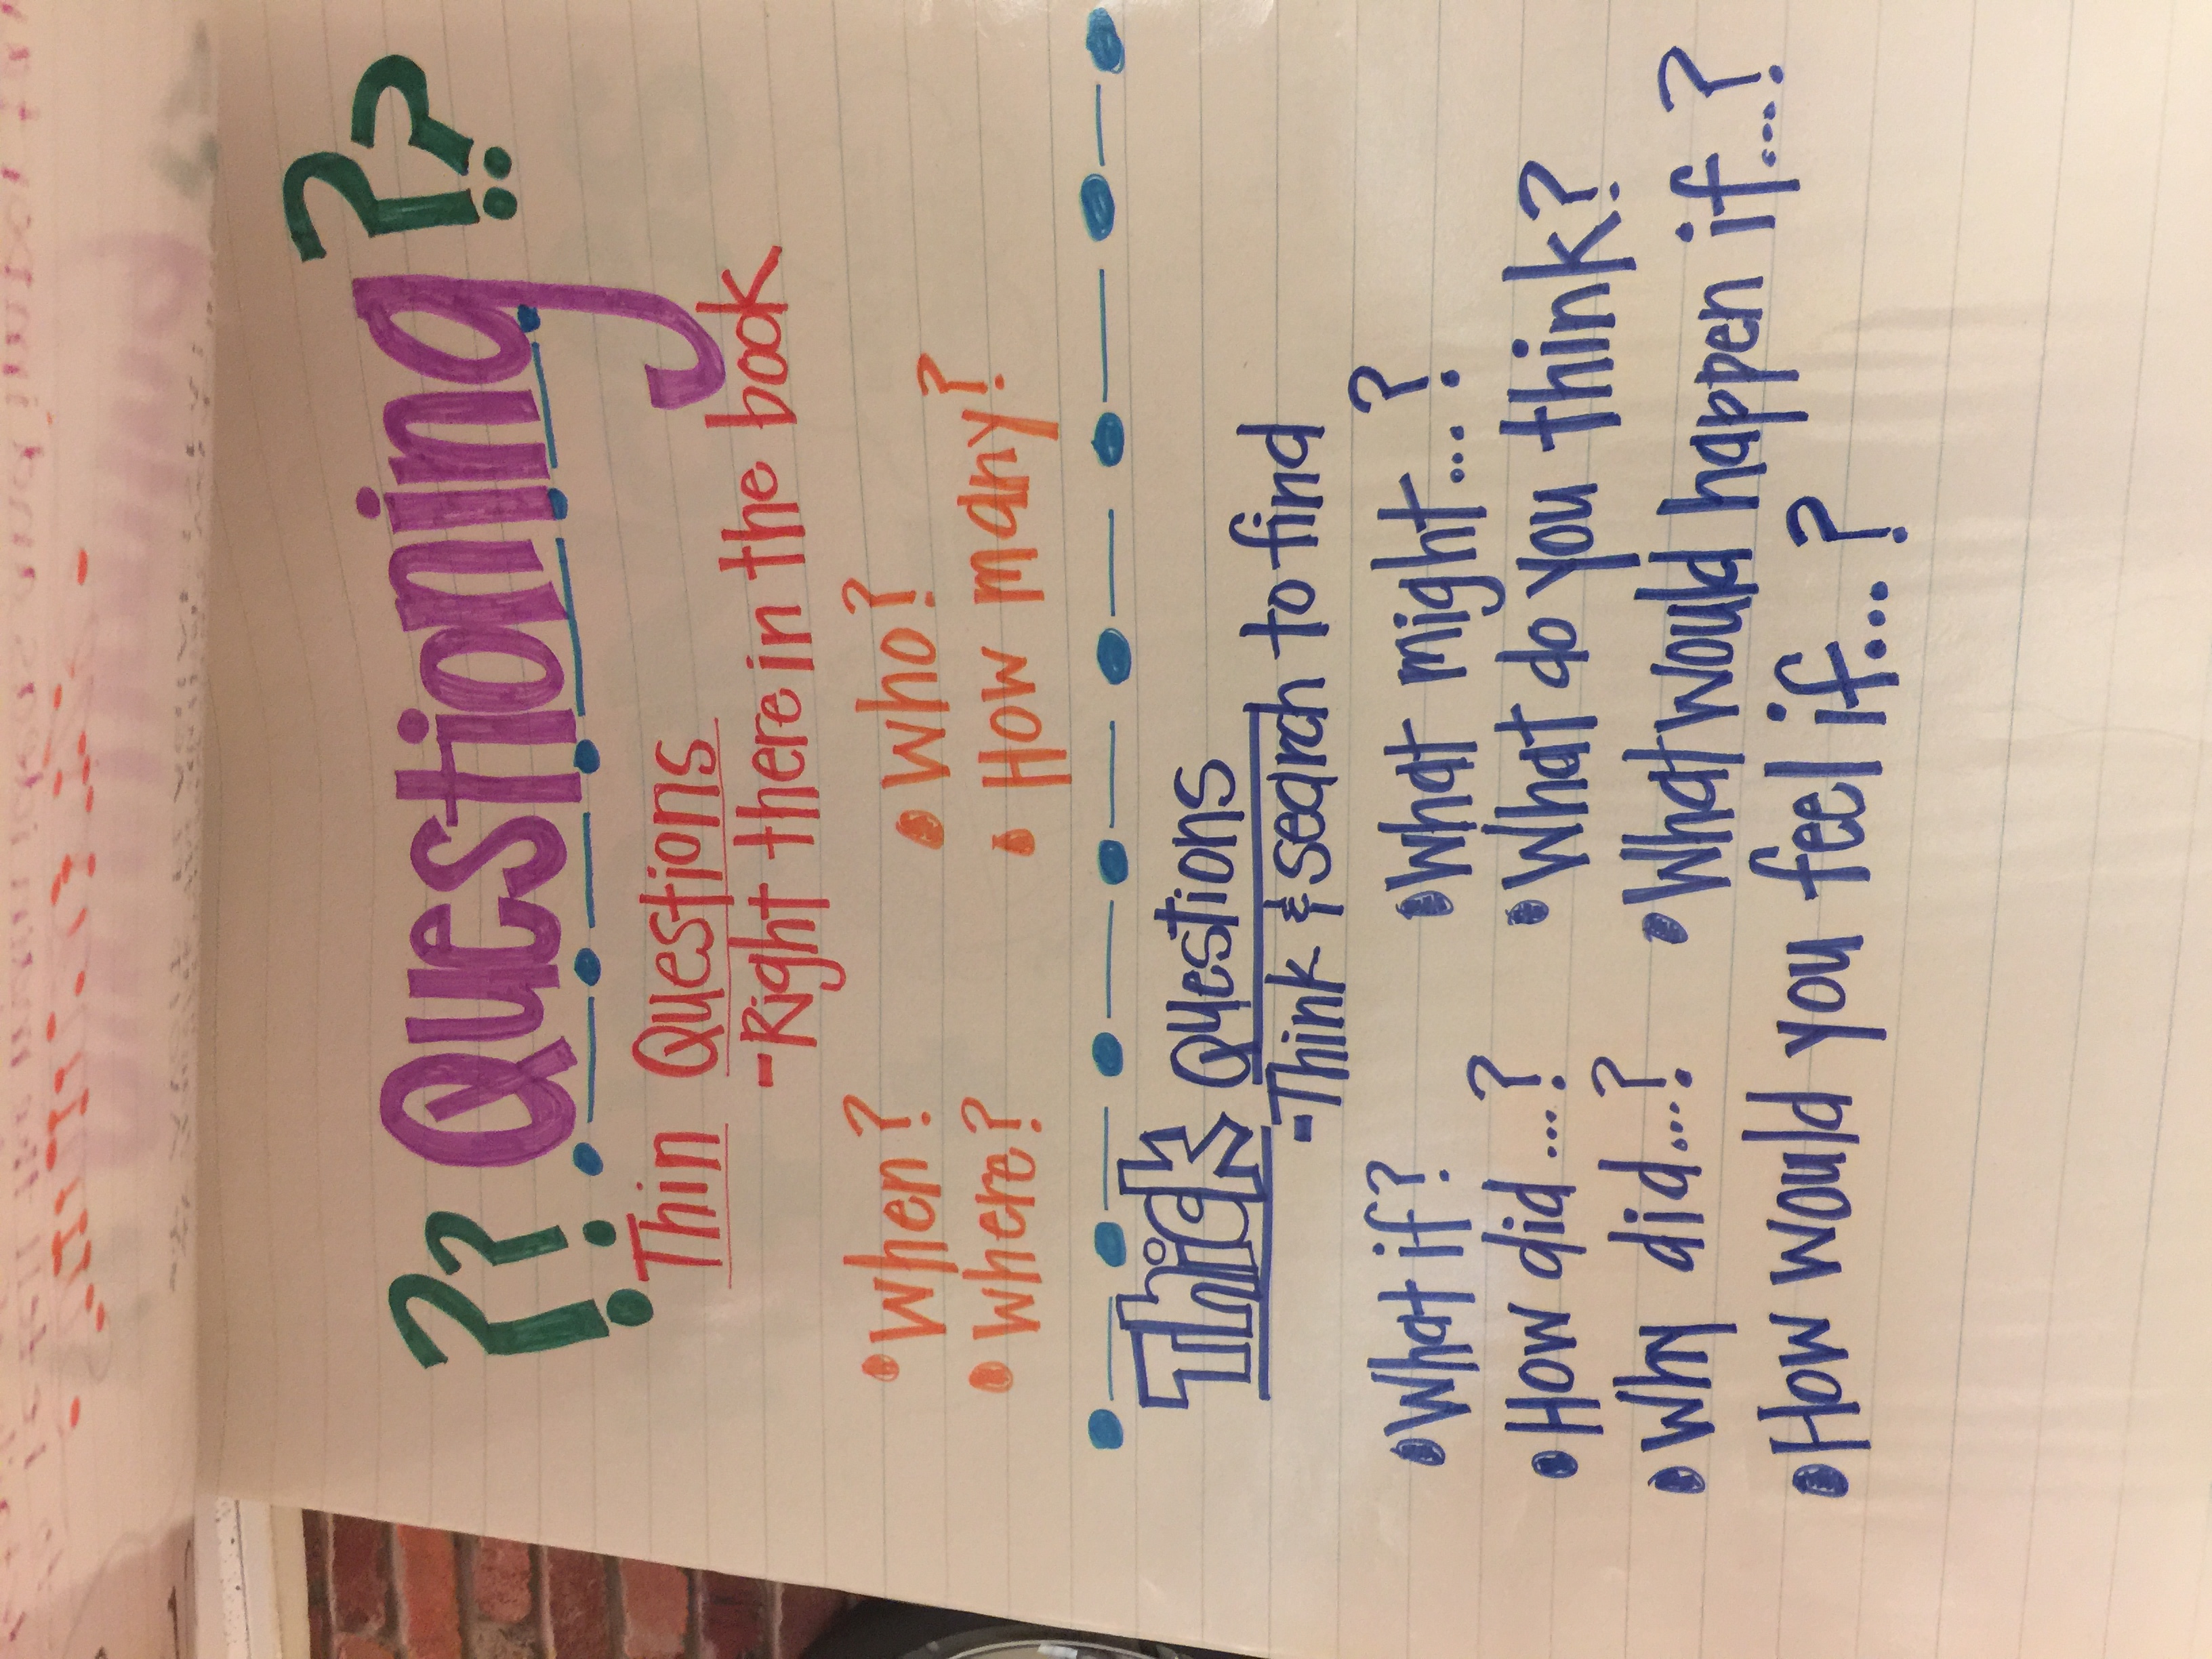 ?? Questioning ??
Thin Questions
-Right there in the book
• When? • Who?
• Where? • How many?
Thick Questions
-Think & search to find
• What if? • What might...?
• How did....? • What do you think?
• Why did....? • What would happen if....?
• How would you feel if....?